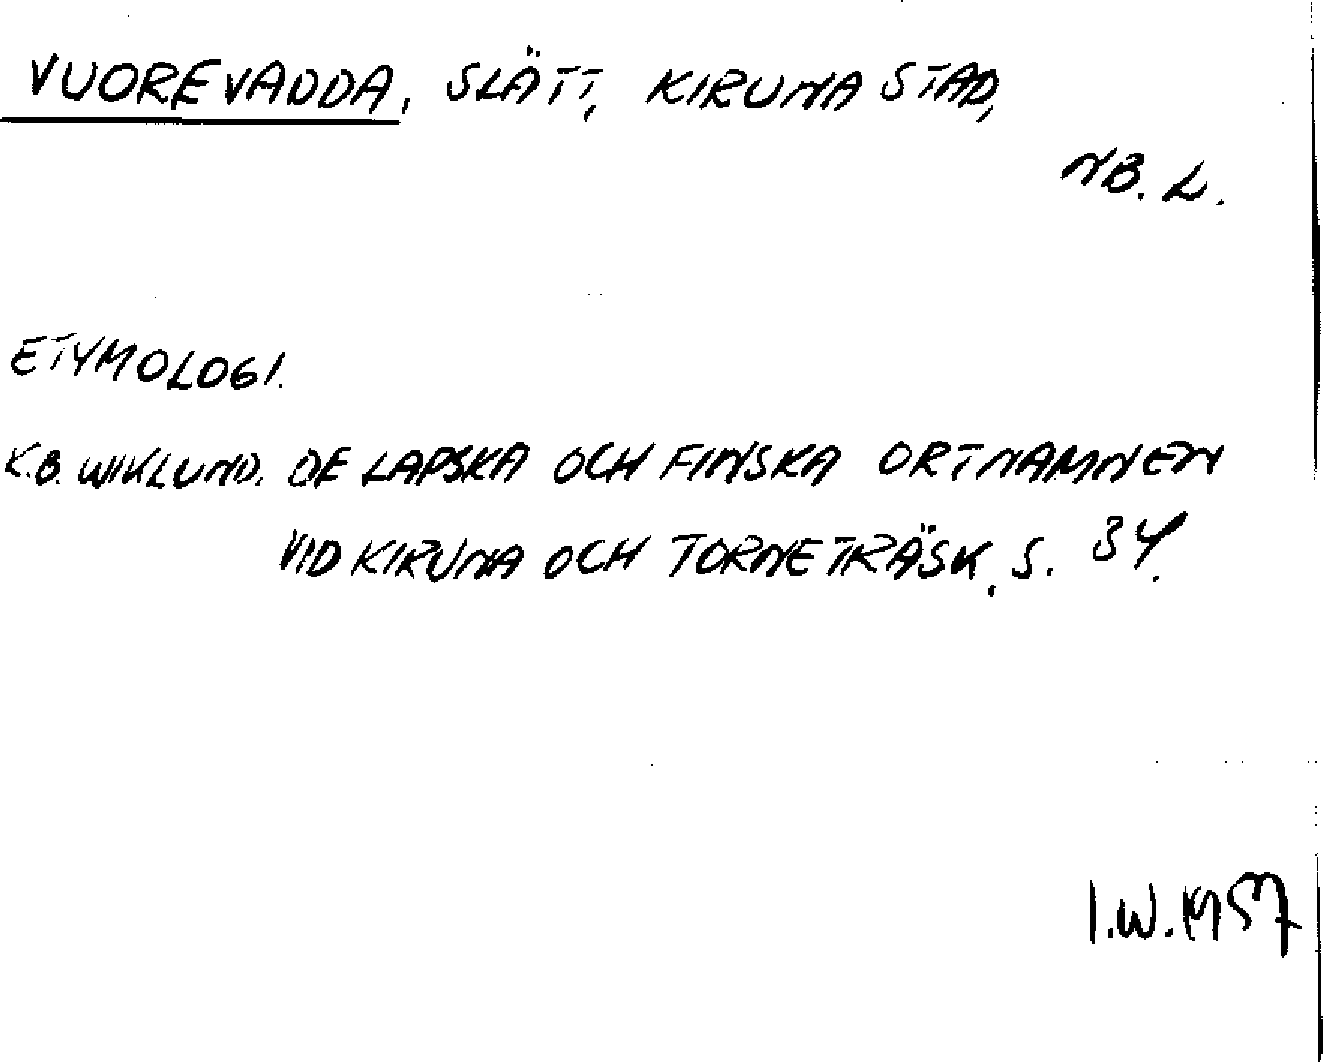 VUOREVADDA, SLÄTT, KIRUNA STAD,
NB. L.
ETYMOLOGI.
K.B. WIKLUND. DE LAPSKA OCH FINSKA ORTNAMNEN
VID KIRUNA OCH TORNETRÄSK, S. 34.
I.W. 1957